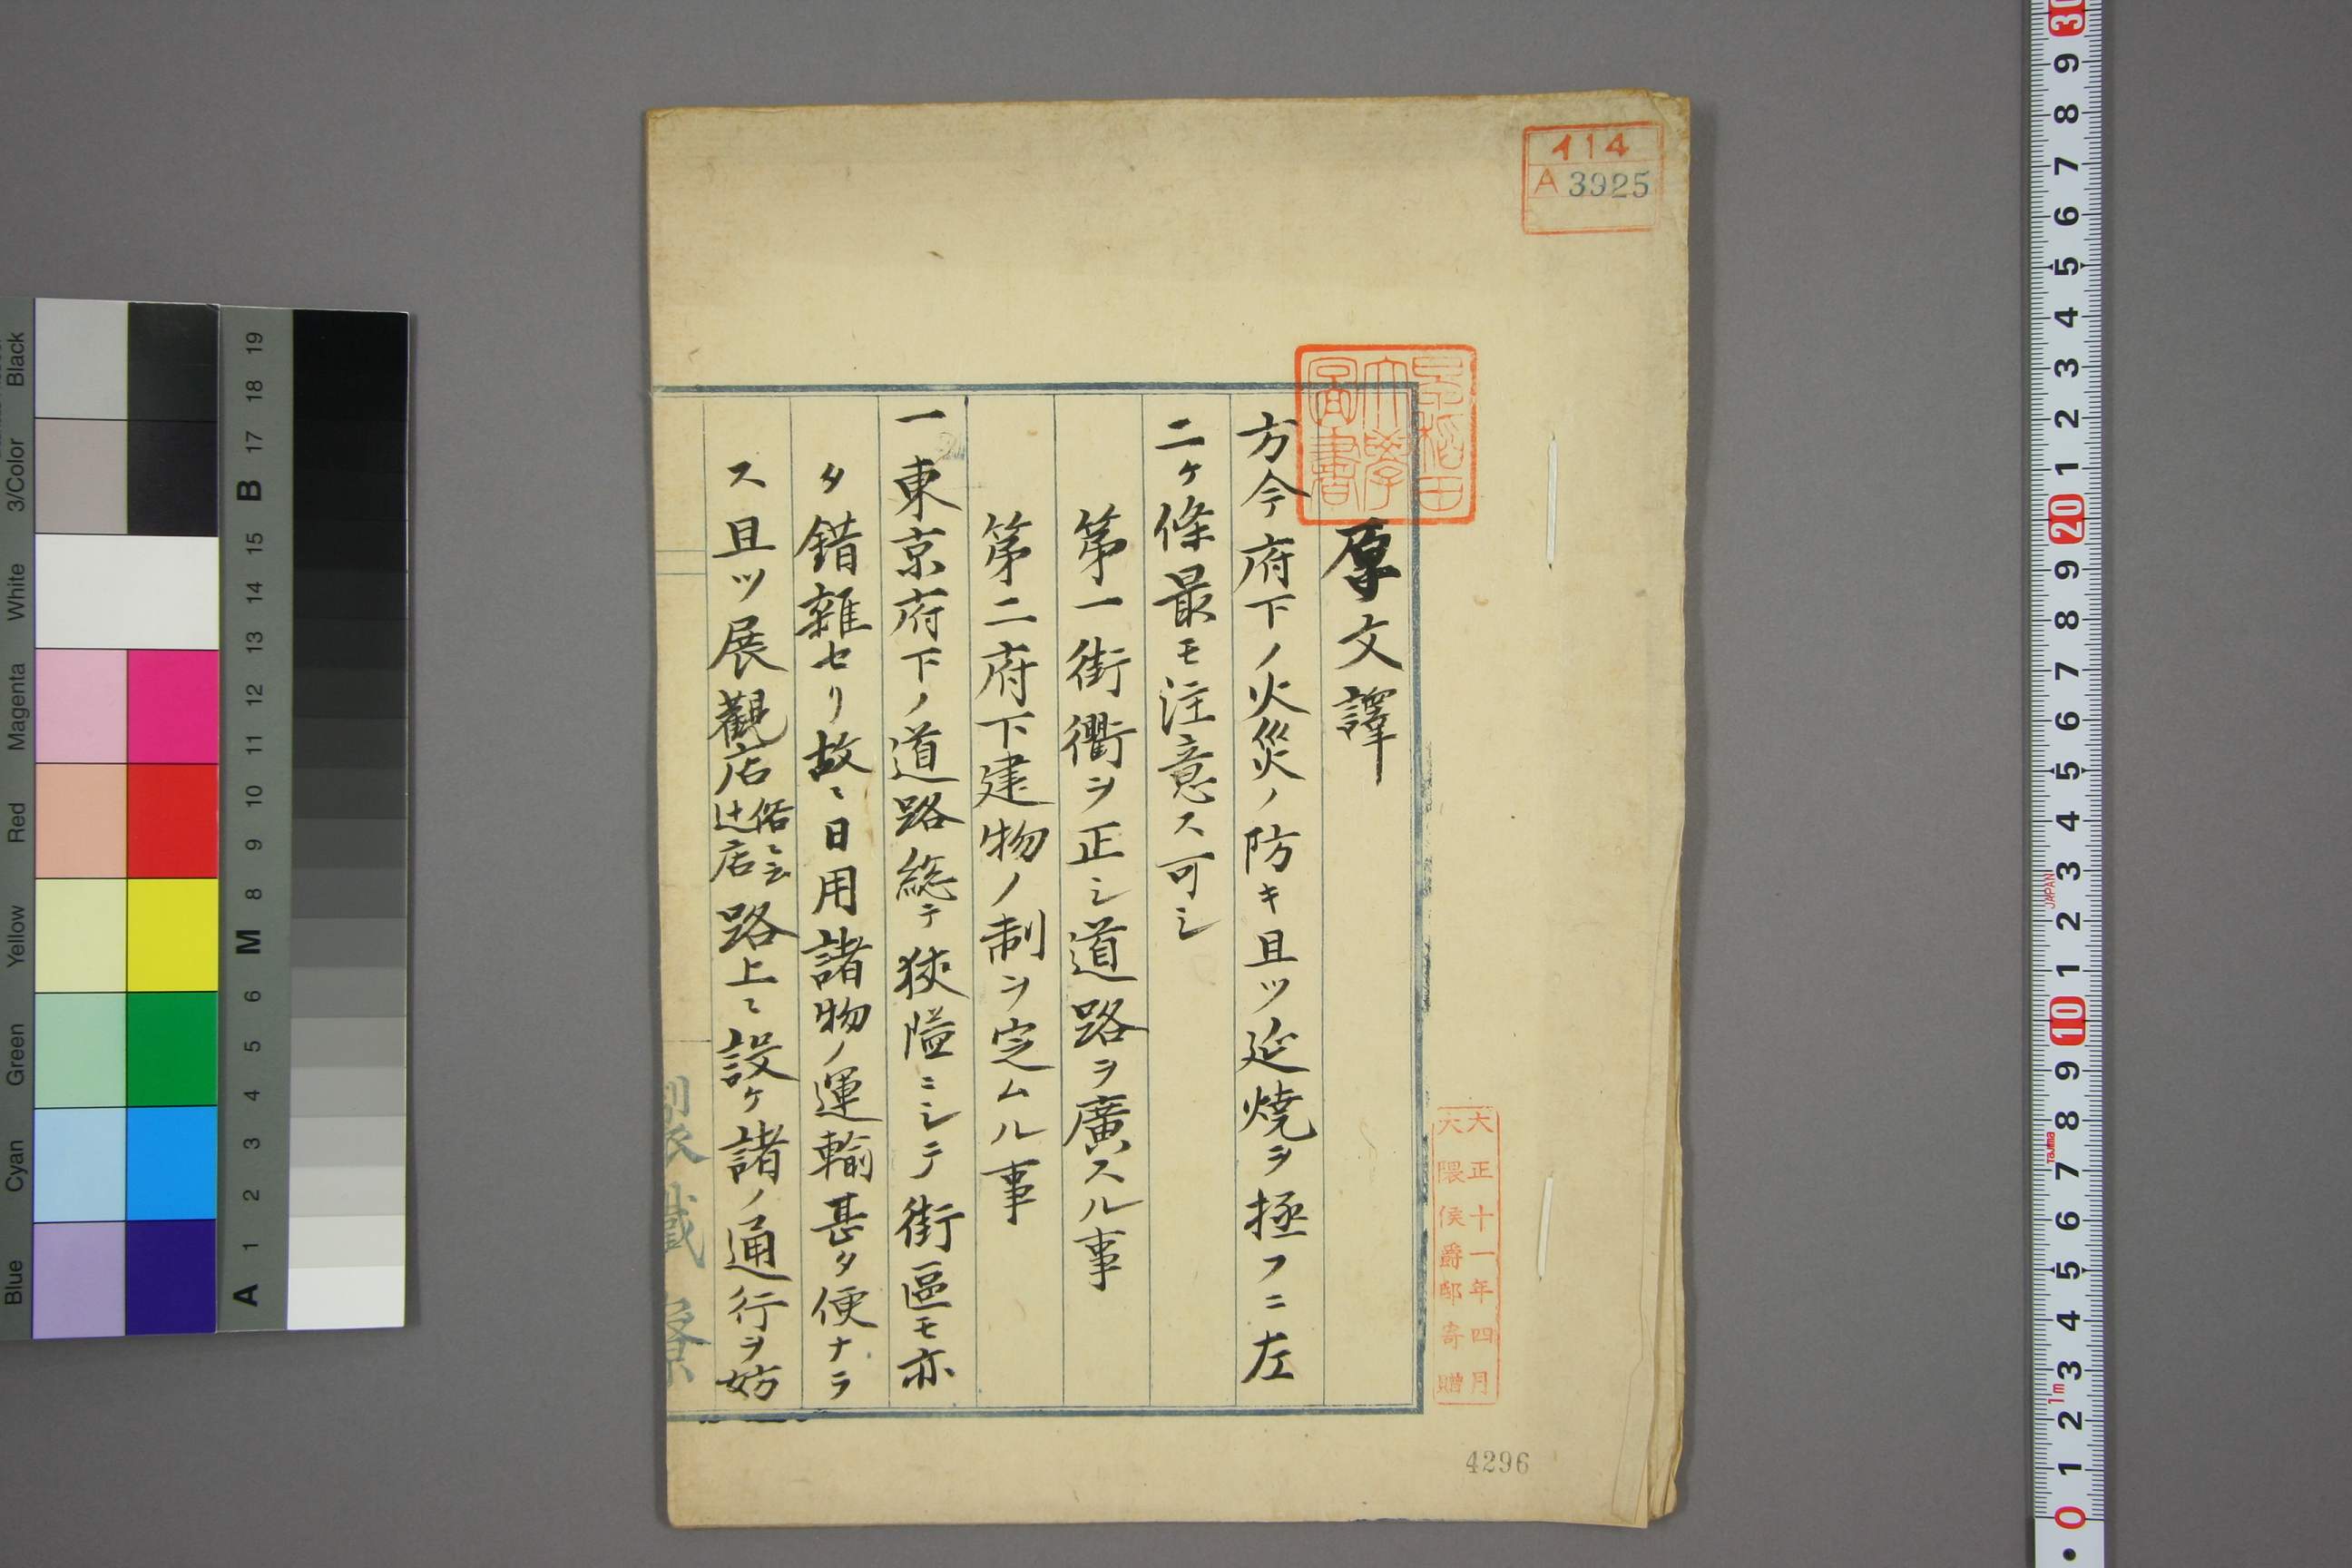 イ14
A 3925
早稲田
大學
圖書
原文譯
方今府下ノ火災ノ防キ且ツ延焼ヲ拯フニ左
二ケ條最モ注意ス可シ
第一街衢ヲ正シ道路ヲ廣スル事
第二府下建物ノ制ヲ定ムル事
一東京府下ノ道路總テ狹隘ニシテ街區モ亦
タ錯雜セリ故ニ日用諸物ノ運輸甚タ便ナラ
ス且ツ展觀店俗ニ云辻店路上ニ設ケ諸ノ通行ヲ妨
大正十一年四月
大隈侯爵邸寄贈
4296
Blue
Cyan
Green
Yellow
Red
Magenta
White
3/Color
Black
A 1 2 3 4 5 6 M 8 9 10 11 12 13 14 15 B 17 18 19
0 1 2 3 4 5 6 7 8 9 10 1 2 3 4 5 6 7 8 9 20 1 2 3 4 5 6 7 8 9 30
1m
Tajima
JAPAN